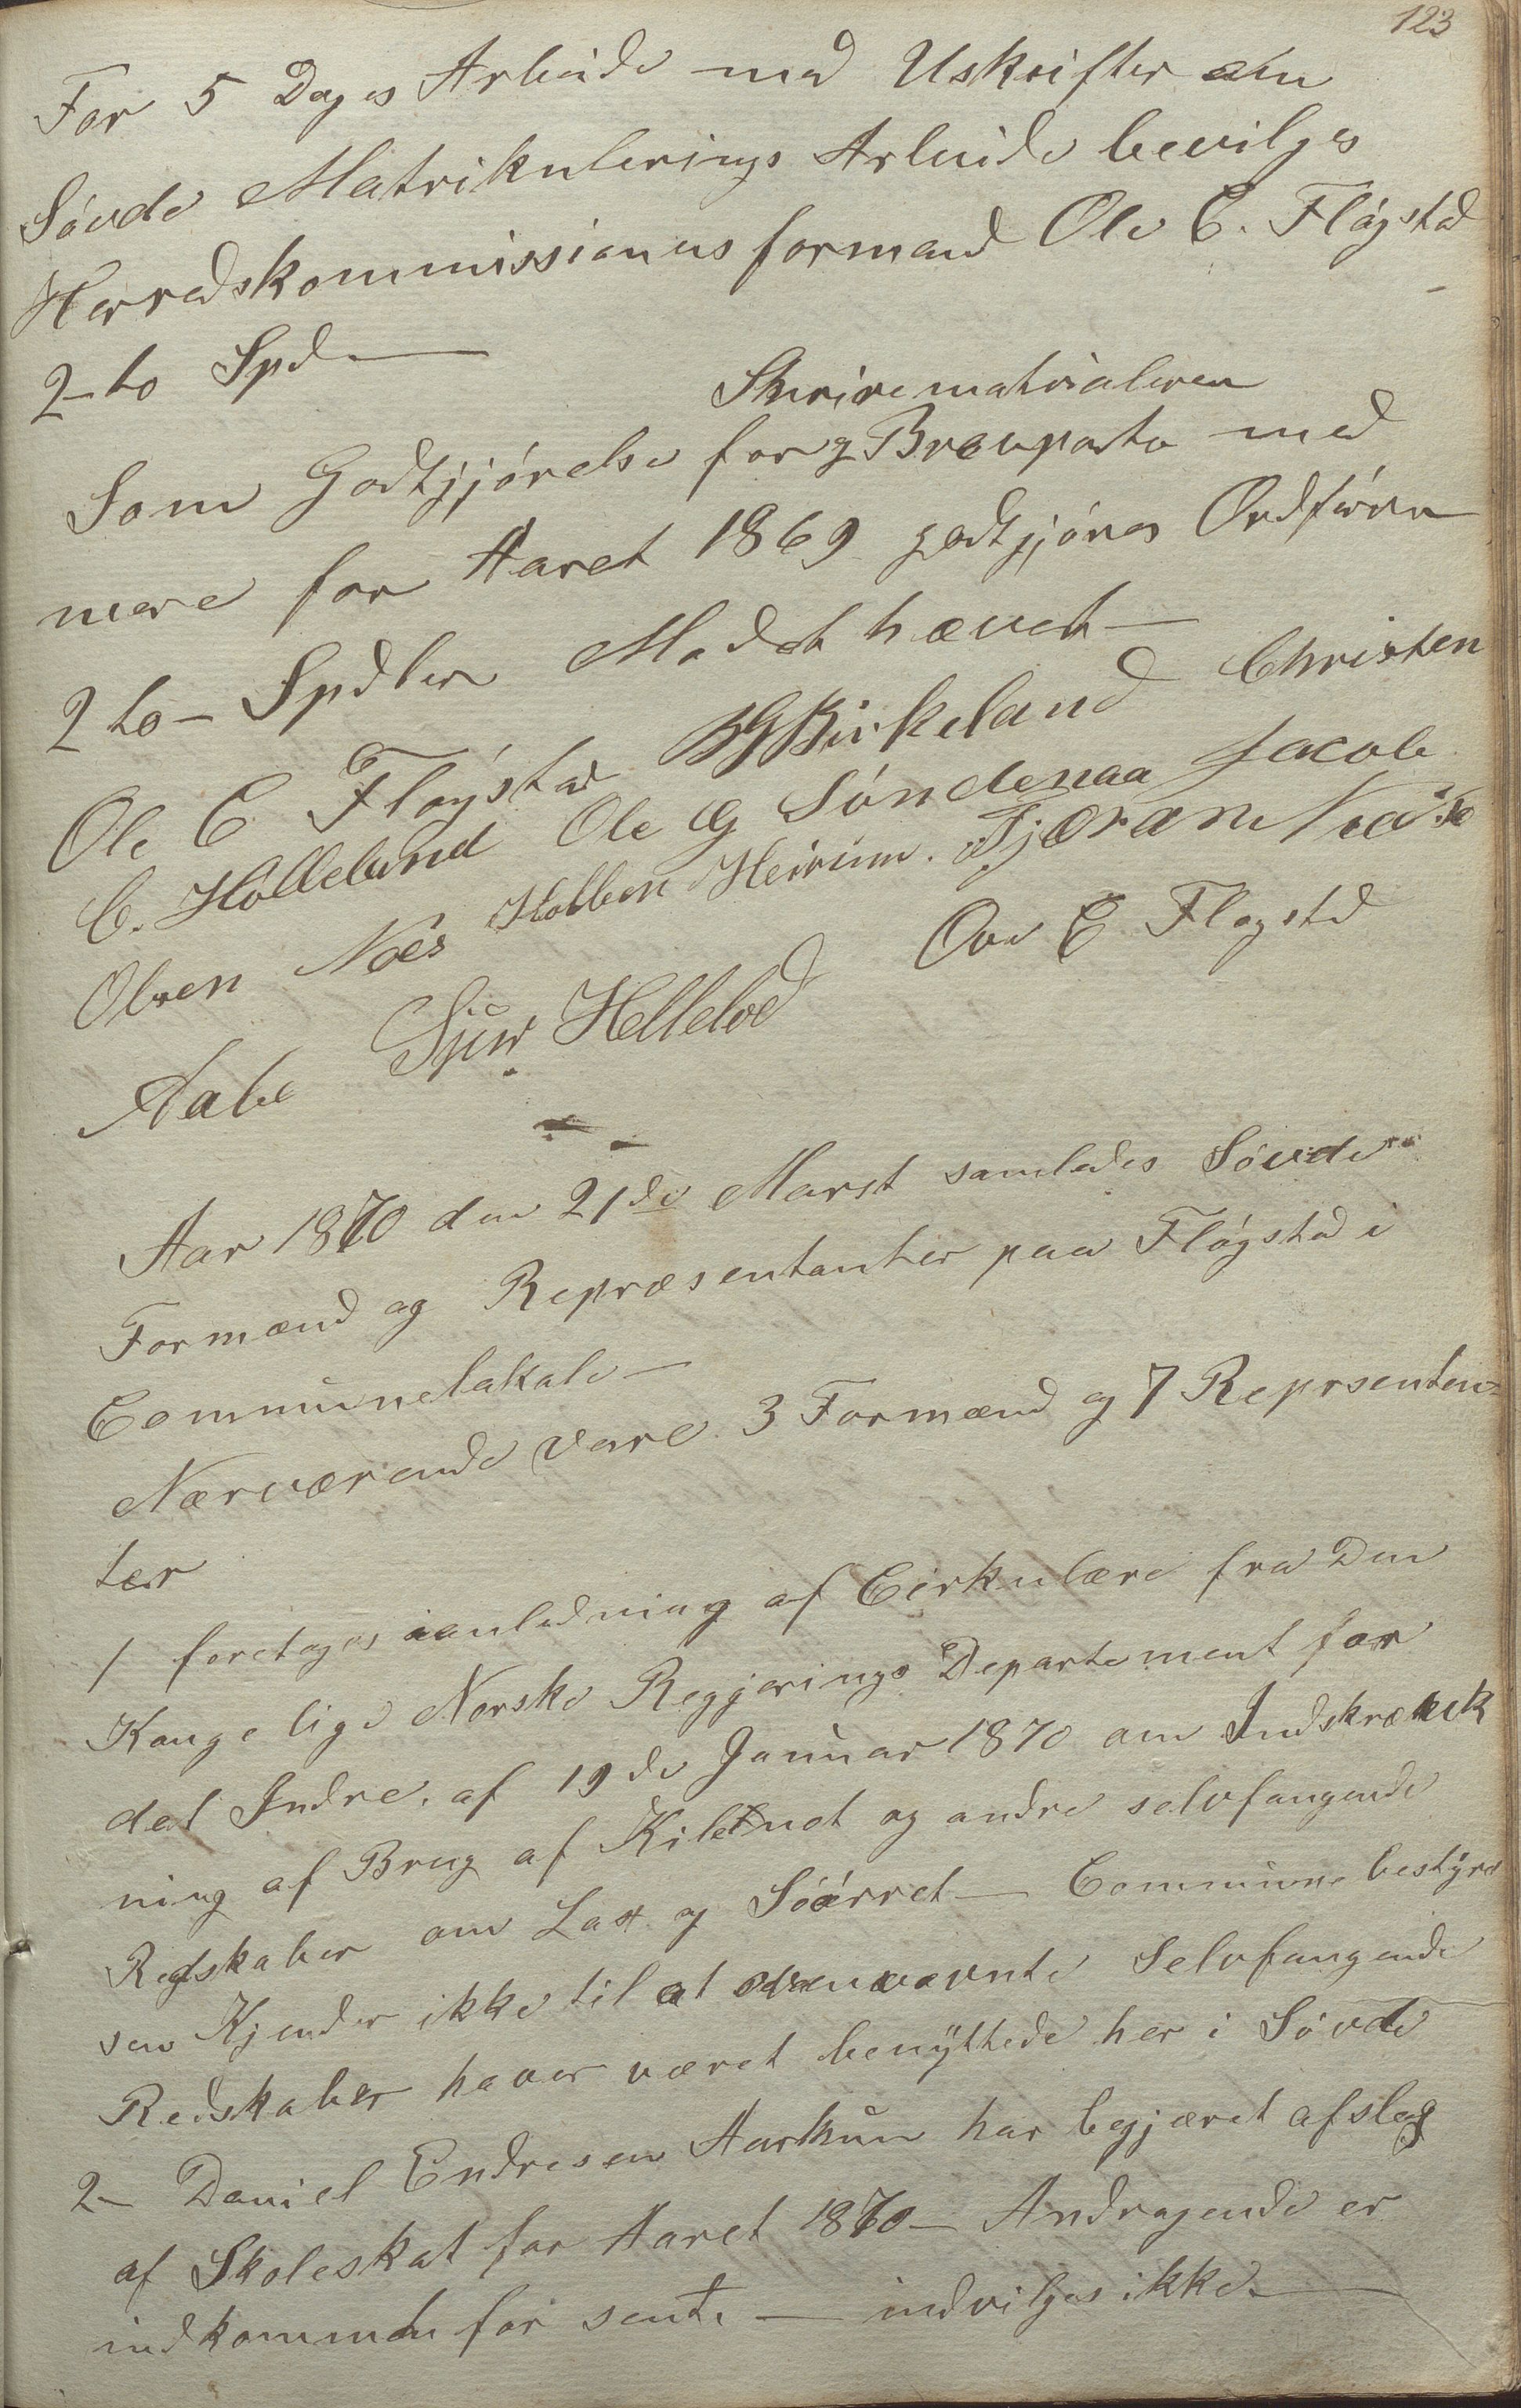 123
For 5 Dages Arbeide med Uskrifter
Søvde Matrikulerings Arbeide bevilges
Herredskommissionens formand Ole C. Fløgstad
2 to Spd
Skrivematrialeren
Som Godtgjørelse for Brevporto med
mere for Aaret 1869 godtgjøres Ordføren
2 to - Spdler Mødet hævet
Ole C Fløgstad BGBirkeland Christen
C. Hølleland Ole G Søndenaa Jacob
Olsen Næs Kolben Heirim. Tjæran
Aabe Sjur Hellelod Ove E Flogstd
Aar 1870 den 21de Marst samledes Søvde
Formænd og Repræsentanter paa Fløgstad i
Communelokale
Nærværende vare 3 Formænd og 7 Reprsentan=
ter
1 foretoges ianledning af Cirkulære fra Den
Kongelige Norske Regjerings Departement for
det Indre. af 19de Januar 1870 om Indskrænk
ning af Brug af Kilenot og andre selvfangende
Redskaber om Lax og Søørret - Communebestyrel
sen Kjender ikke til at ovennævnte Selvfangende
Redskaber haver været benyttede her i Søvde
2 - Daniel Endresen Aarthun har begjæret afslag
af Skoleskat for Aaret 1870 - Andragende er
indkommen for sente - indvilges ikke